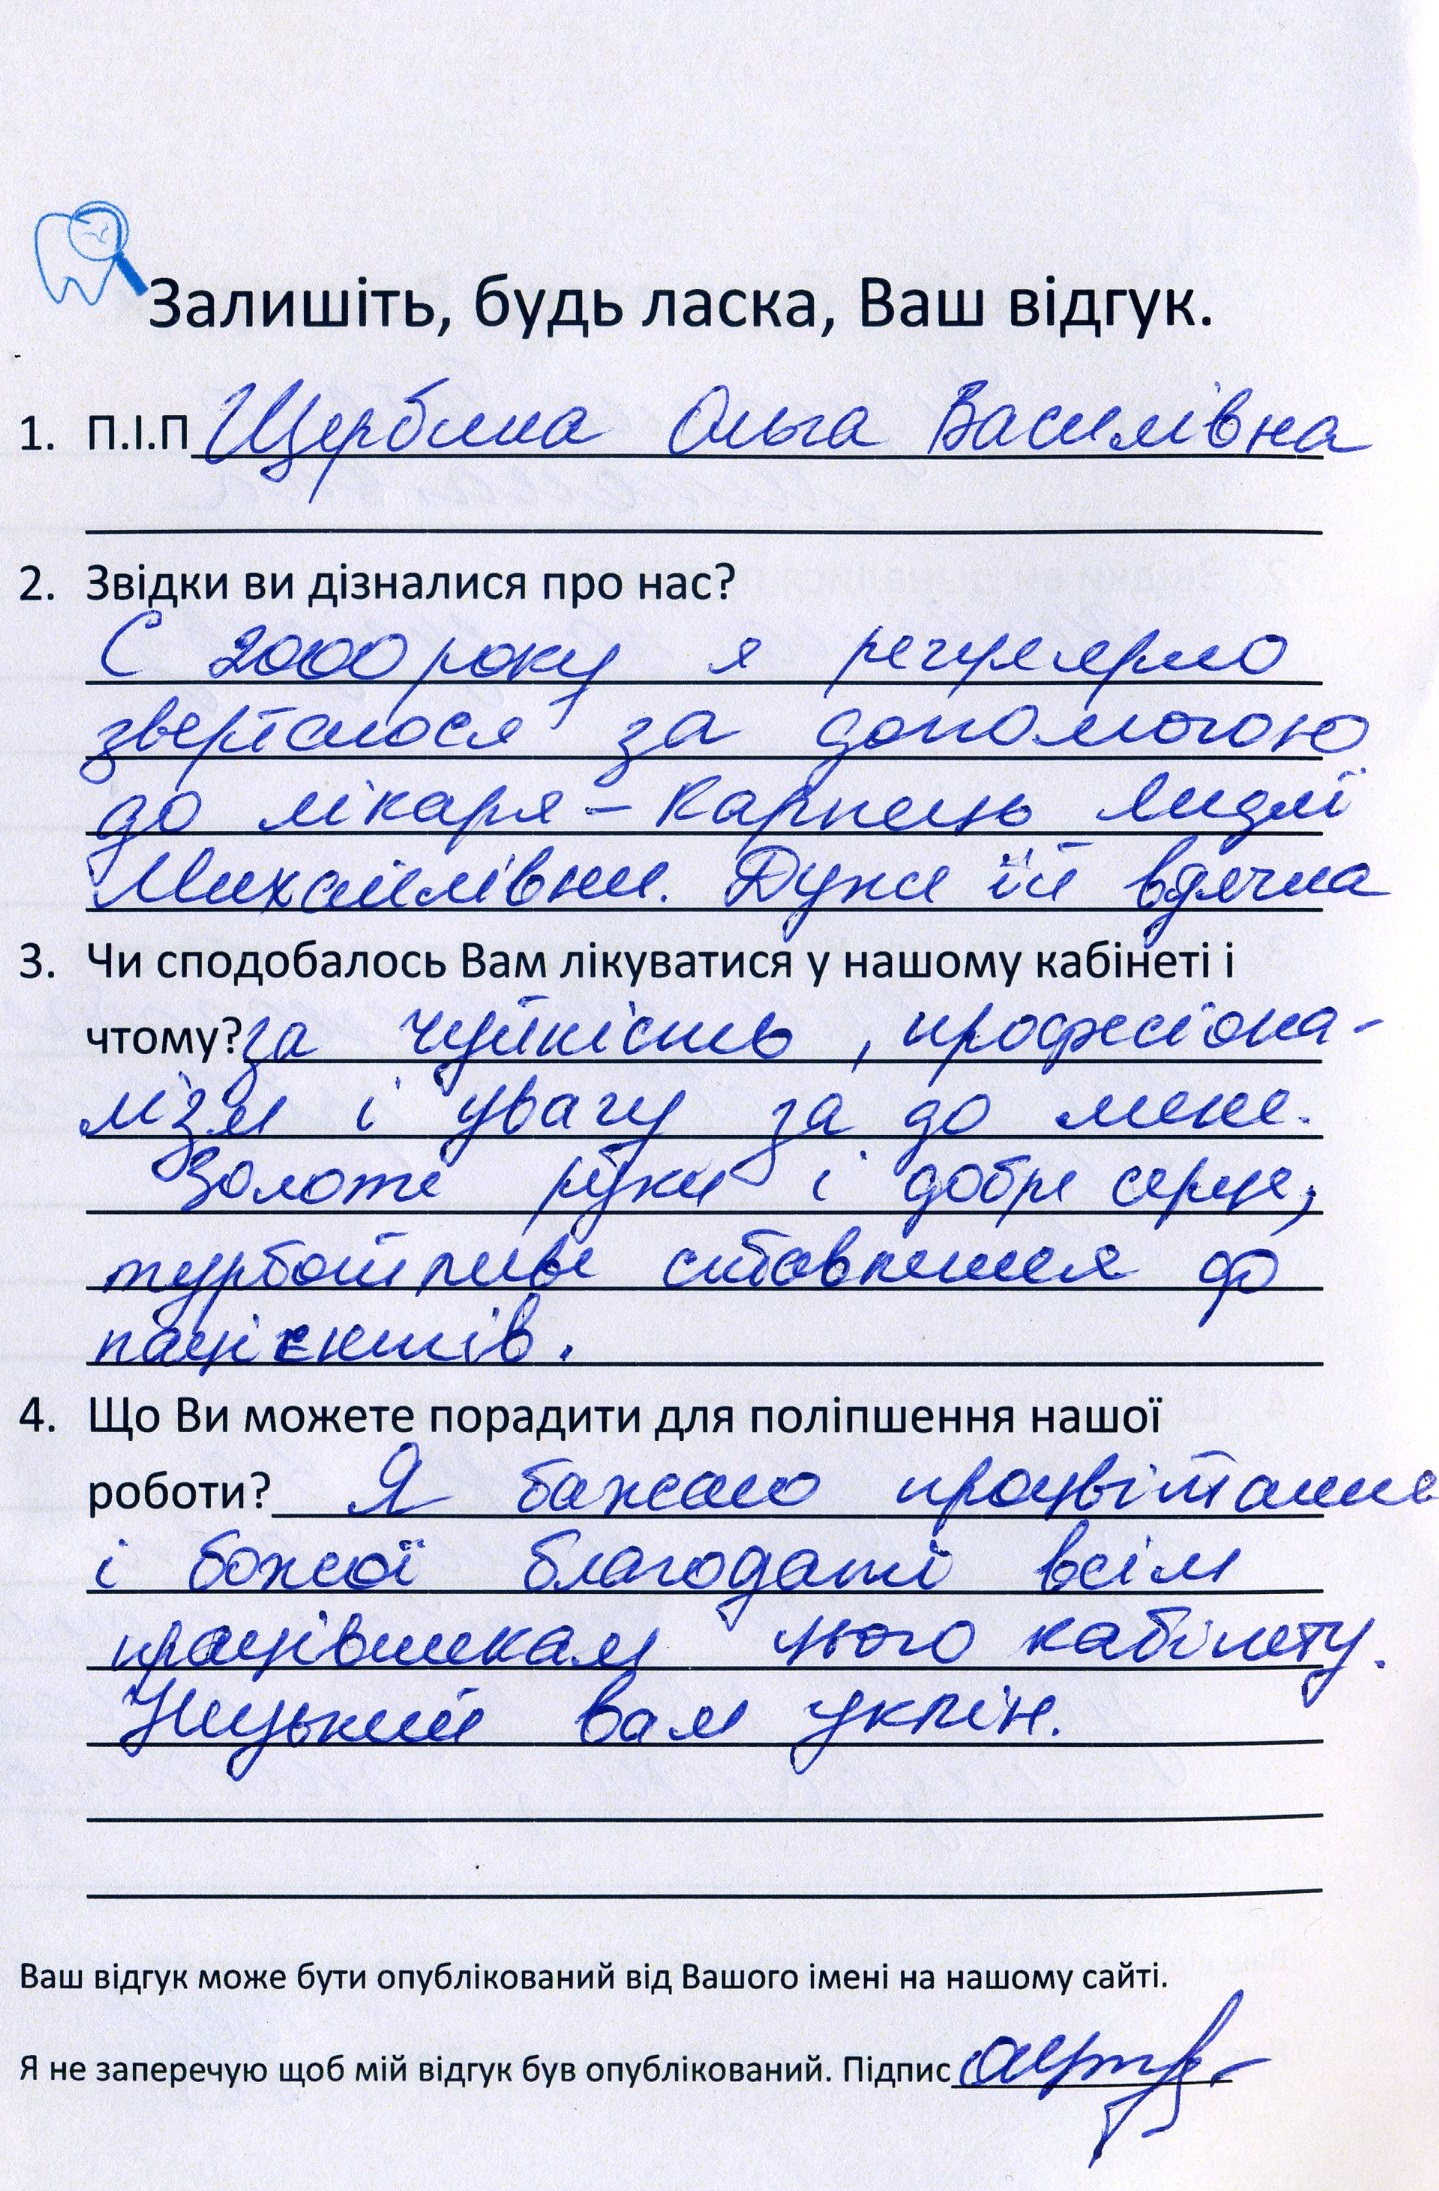 Залишіть, будь ласка, Ваш відгук.
1. П.І.П Щербина Ольга Василівна
2. Звідки ви дізналися про нас?
С 2000 року я регулярно
звертаюся за допомогою
до лікаря – Карпець Лидії
Михайлівни. Дуже їй вдячна
3. Чи сподобалось Вам лікуватися у нашому кабінеті і
чтому? за чуйність, професіона-
лізм і увагу за до мене.
Золоті руки і добре серце,
турботливе ставлення до
пацієнтів.
4. Що Ви можете порадити для поліпшення нашої
роботи? Я бажаю процвітання
і божої благодаті всім
працівникам цього кабінету.
Низький вам уклін.
Ваш відгук може бути опублікований від Вашого імені на нашому сайті.
Я не заперечую щоб мій відгук був опублікований. Підпис